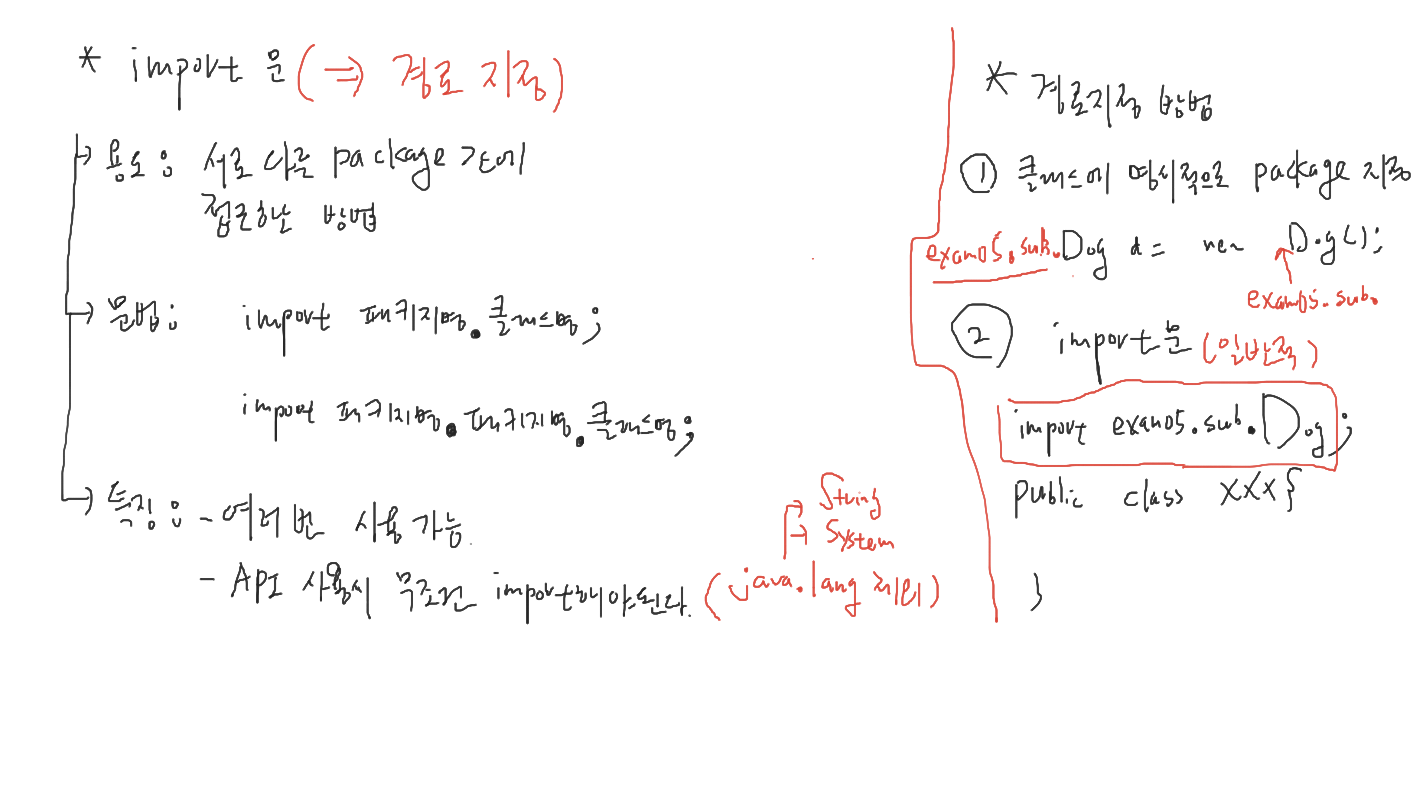 * import 문 (⇒ 경로 지정)
용도: 서로 다른 package 간에
접근하는 방법
문법: import 패키지명.클래스명;
import 패키지명.패키지명.클래스명;
특징: - 여러번 사용가능.
- API 사용시 무조건 import해야된다. (java.lang 제외)
→ String
→ System
* 경로지정 방법
① 클래스에 명시적으로 package 지정
exam05.sub.Dog d = new Dog();
exam05.sub.
② import문 (일반적)
import exam05.sub.Dog;
public class XXX {
}